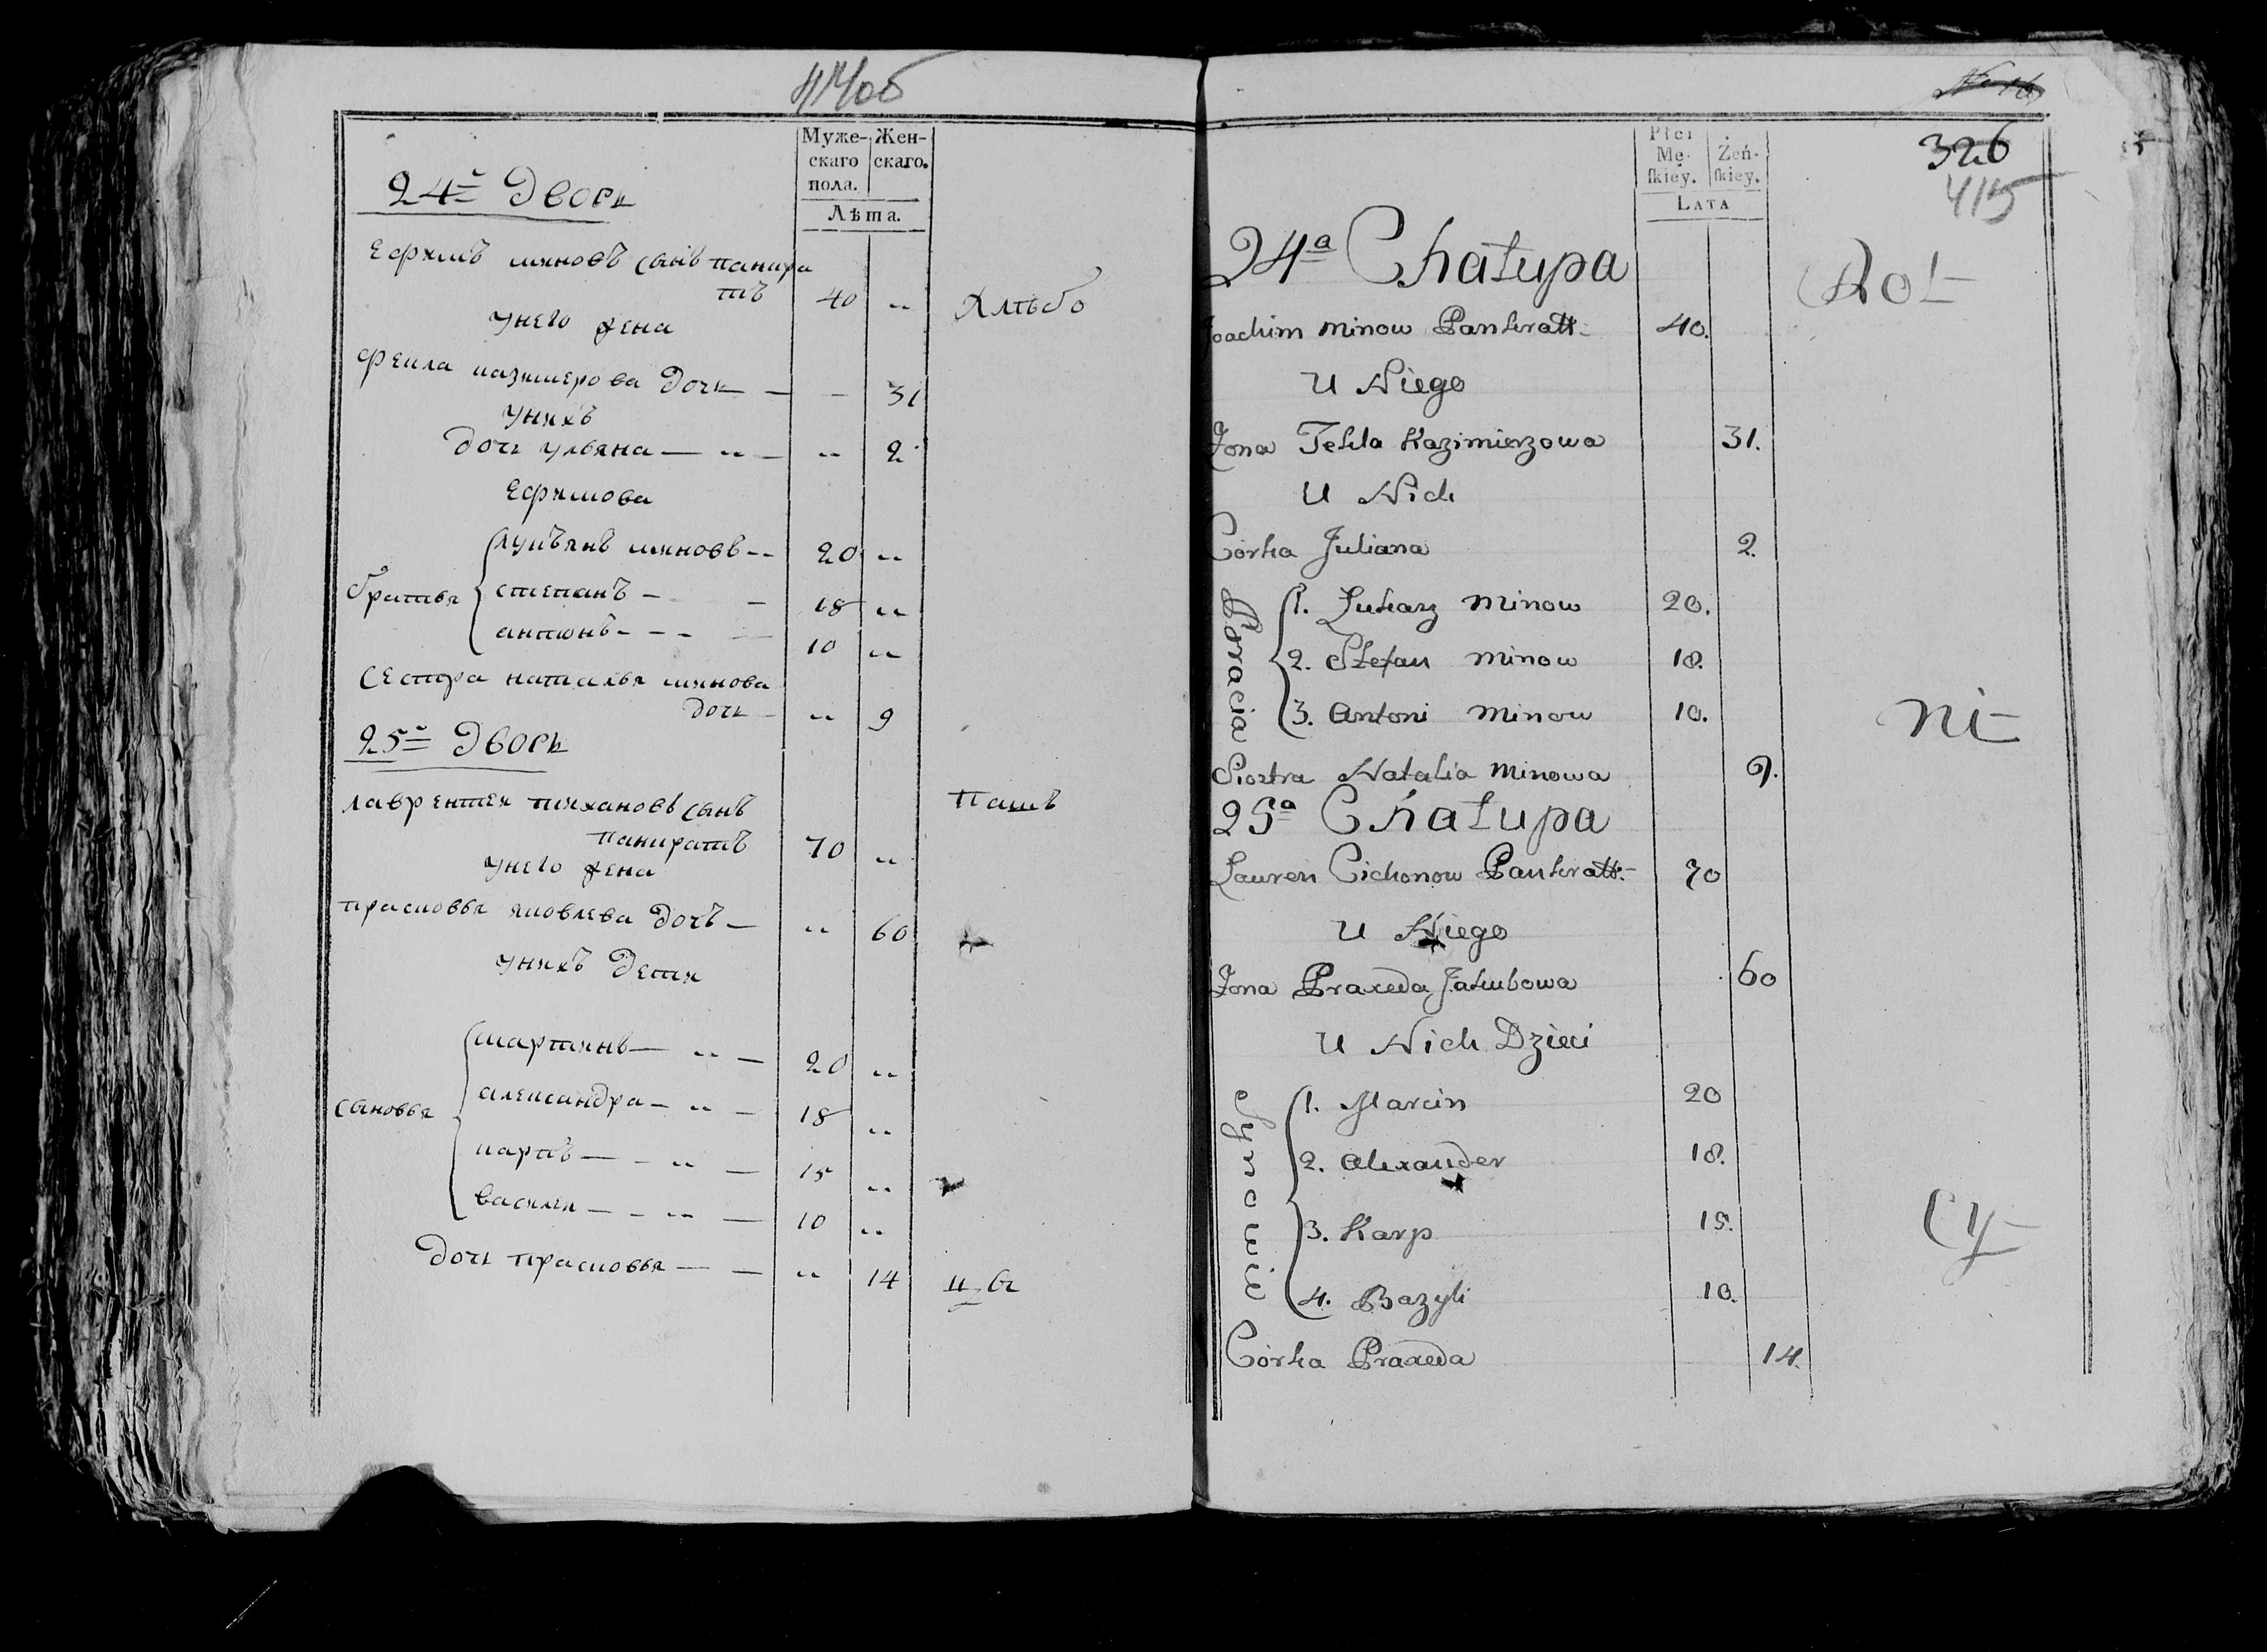 414об
Муже- Жен-
скаго скаго.
пола.
Лѣта.
24й Дворъ
Ефимъ миновъ сынъ панкра
тъ 40 „
Хлѣбо
у него жена
Фекла казимерова дочь — — 31
у нихъ
дочь ульяна — „ — „ 2
Ефимова
братья
лукьянъ миновъ -- 20 „
степанъ - - 18 „
антонъ - - - 10 „
сестра наталья минова
дочь - „ 9
25й Дворъ
лаврентей тихановъ сынъ
Паш
панкратъ 70 „
у него жена
прасковья яковлева дочъ — „ 60
у нихъ дети
сыновья
мартинъ — „ — 20 „
александра - „ - 18 „
карпъ — - „ — 15 „
василей — - „ — 10 „
дочь прасковья — — „ 14
Płci
Mę- Żeń-
ſkiey. ſkiey.
LATA
326
415
24a Chałupa
Joachim Minow Pankratt- 40.
U Niego
Żona Tekla Kazimierzowa 31.
U Nich
Córka Juliana 2.
Bracia
1. Łukasz Minow 20.
2. Stefan Minow 18.
3. Antoni Minow 10.
ni-
Siostra Natalia Minowa 9.
25a Chałupa
Lauren Cichonow Pankratt- 70
U Niego
Żona Praxeda Jakubowa 60
U Nich Dzieci
Synowie
1. Marcin 20
2. Alexander 18.
3. Karp 15.
4. Bazyli 10.
Córka Praxeda 14.